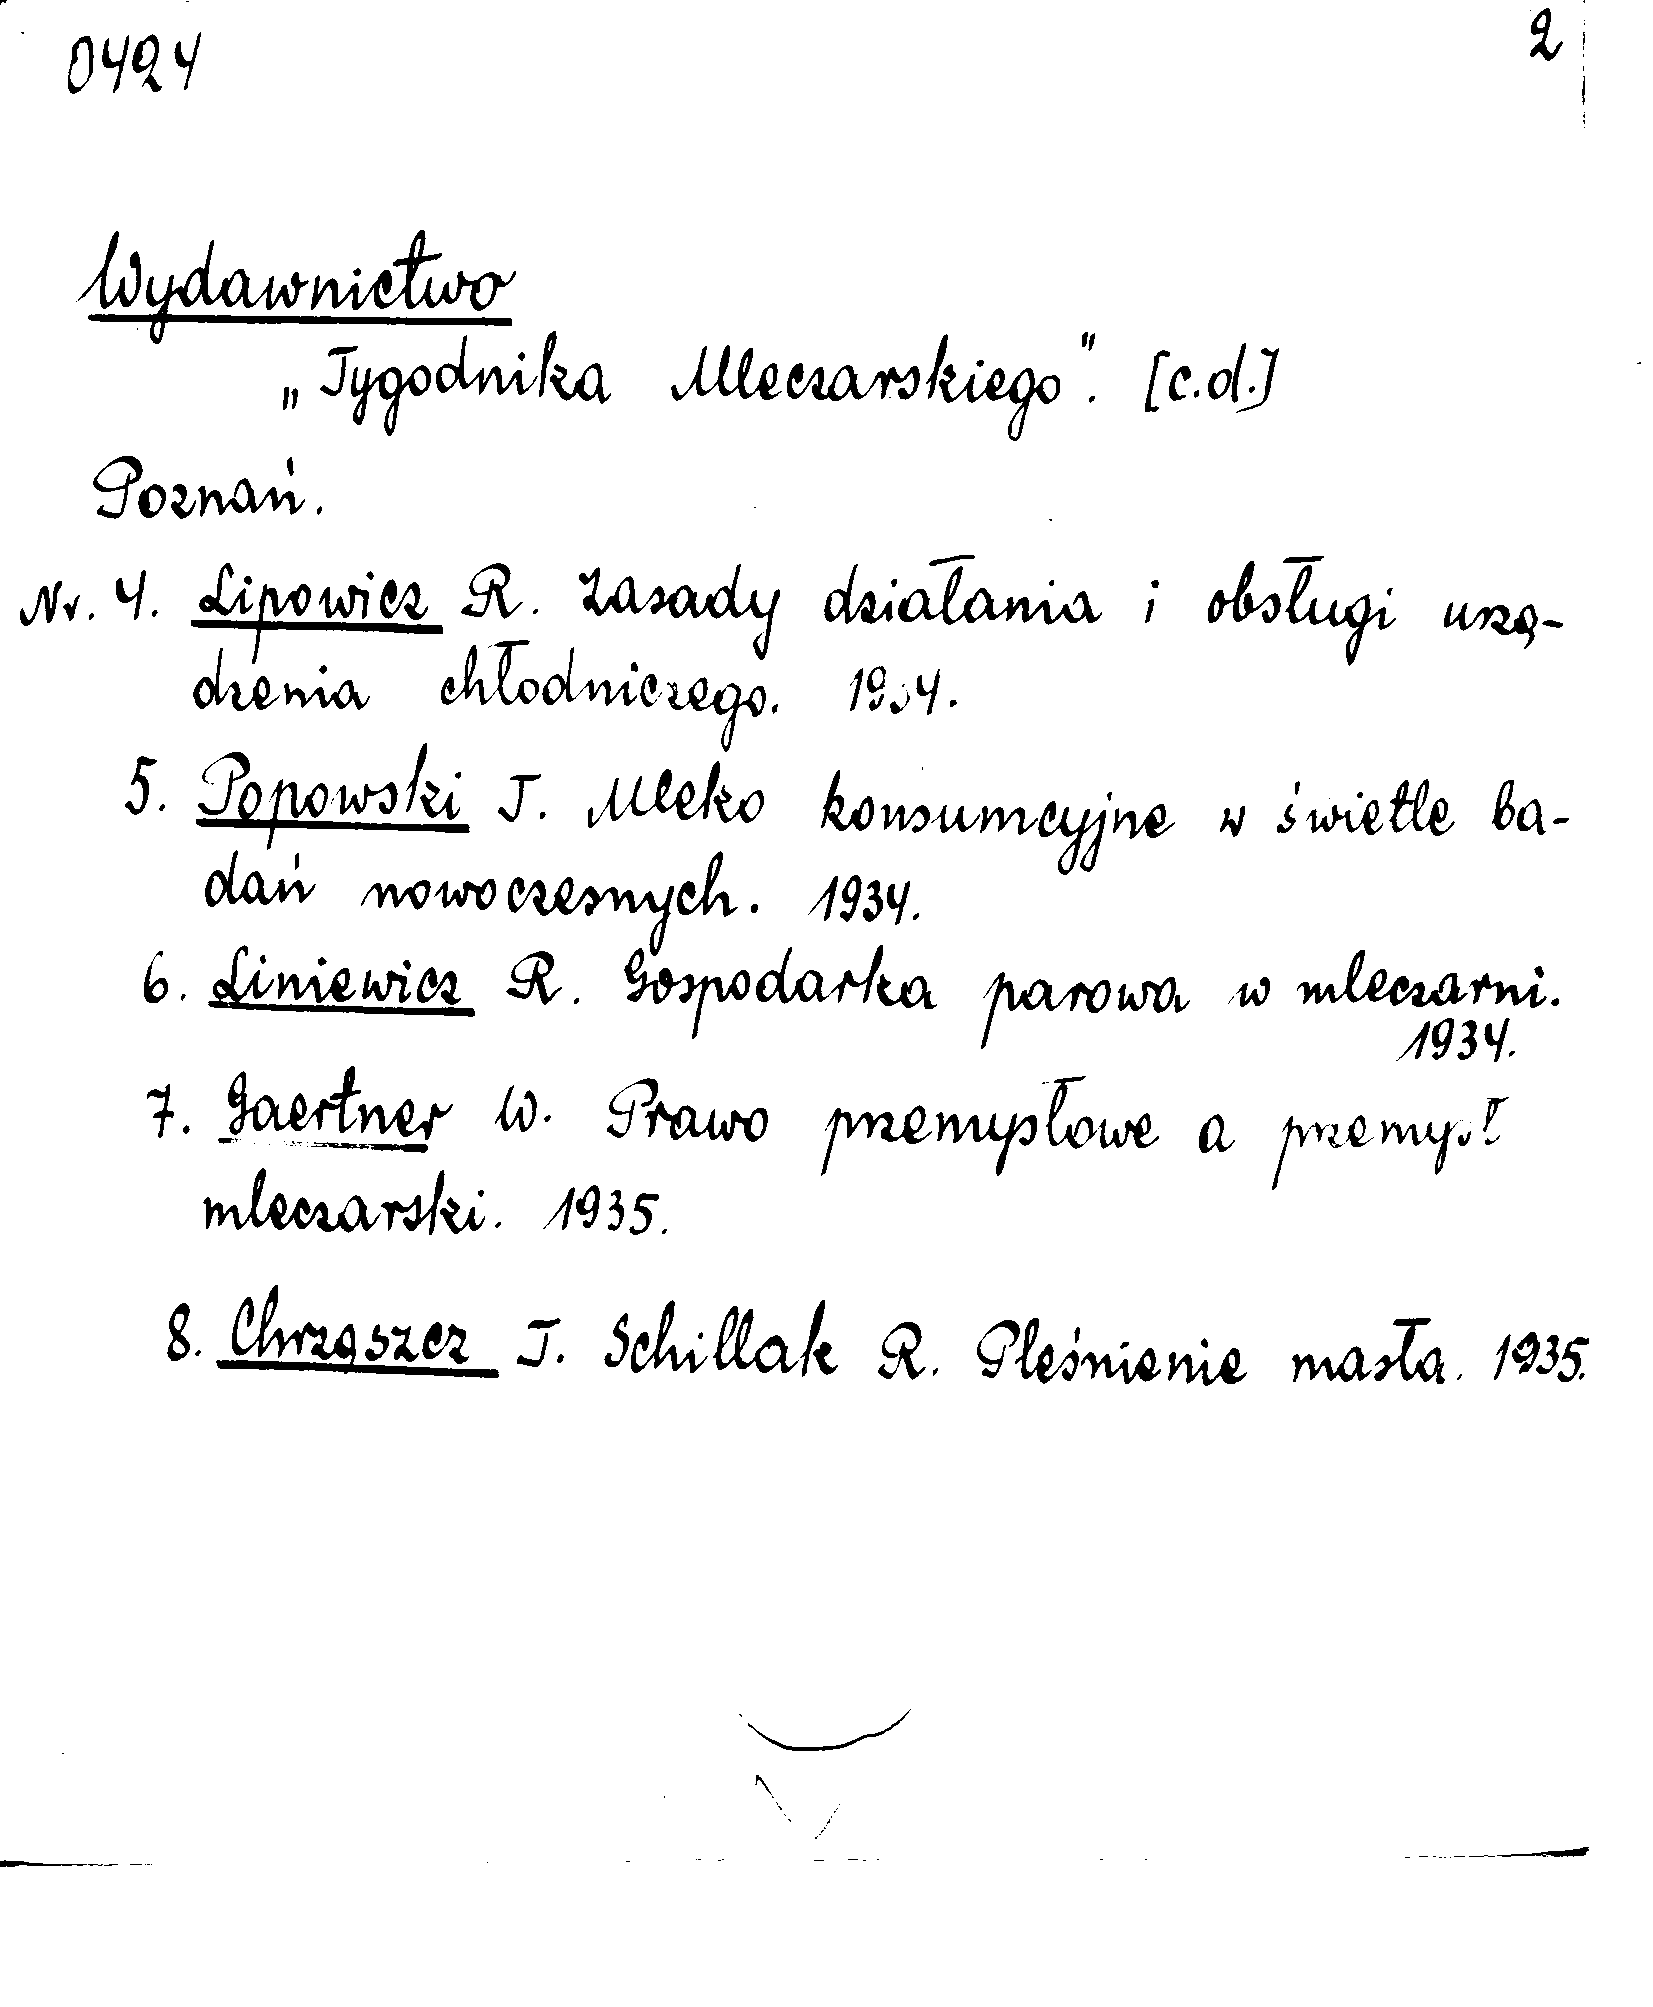 0424 2
Wydawnictwo
„Tygodnika Mleczarskiego". [c.d.]
Poznań.
Nr. 4. Lipowicz R. Zasady działania i obsługi urzą-
dzenia chłodniczego. 1934.
5. Popowski J. Mleko konsumcyjne w świetle ba-
dań nowoczesnych. 1934.
6. Liniewicz R. Gospodarka parowa w mleczarni.
1934.
7. Gaertner W. Prawo przemysłowe a przemysł
mleczarski. 1935.
8. Chrząszcz T. Schillak R. Pleśnienie masła. 1935.